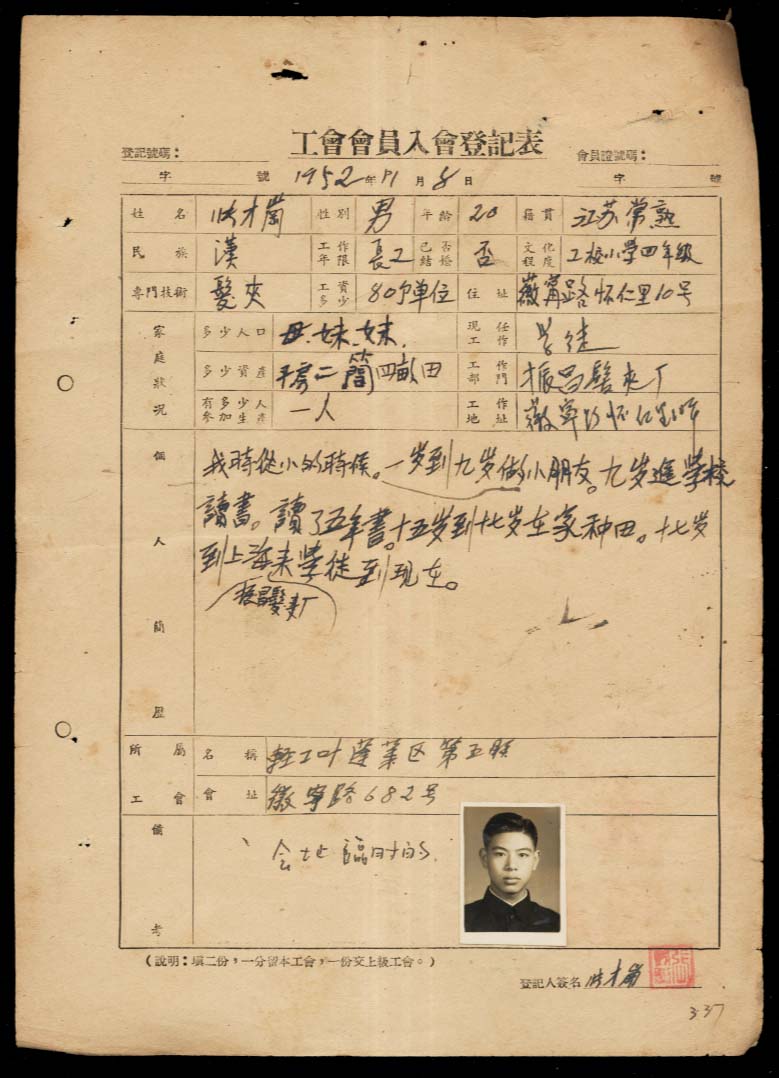 工會會員入會登記表
登記號碼：
會員證號碼：
字 號 1952年11月8日 字 號
姓名 才 性別 男 年齡 20 籍貫 江苏常熟
民族 漢 工作年限 長工 已否結婚 否 文化程度 工校小学四年級
專門技術 髮夾 工資多少 80个单位 住址 徽甯路怀仁里10号
家庭狀況 多少人口 母.妹.妹. 現任工作 学徒
多少資產 平房二簡四畝田 工作部門 振昌髮夾厂
有多少人參加生產 一人 工作地址 徽寧路怀仁里
個人簡歷
我時從小的時候。一岁到九岁做小朋友。九岁進學校
讀書。讀了五年書。十五岁到十七岁在家种田。十七岁
到上海来學徒到现在。
振昌髮夹厂
所屬工會 名稱 輕工叶蓬莱区第五联
會址 徽寧路682号
備考 会址臨时的.
（說明：填二份，一分留本工會，一份交上級工會。）
登記人簽名 才
337